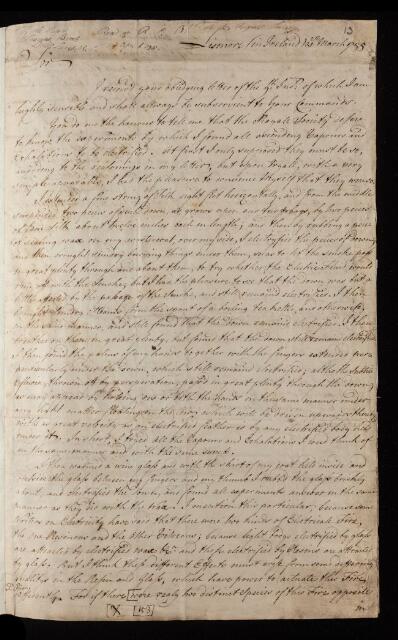 13
Lismore in Ireland 20th March 1755
Sir
I receiv'd your obliging letter of the 9th Inst. of which I am
highly sensible and shall always be subservient to your Commands.
You do me the honour to tell me that the Royall Society desire
to know the experiments by which I found all ascending Vapours and
Exhalations to be electrified. At first I only supposed they must be so,
according to the reasonings in my letter; but upon tryall, with a very
simple apparatus, I had the pleasure to convince myself that they were so.
I extended a fine string of silk eight foot horizontally, and from the middle
suspended two pieces of down, at grows upon our turkeys, by two pieces
of fine silk about twelve inches each in length, and then by rubbing a piece
of sealing wax on my waistcoat over my side, I electrified the pieces of down,
and then brought sundry burning things under them, so as to let the smoke pass
in great plenty through and about them, to try whether the Electrical fluid would
run off with the smoke, but I had the pleasure to see that the down was but a
little affected by the passage of the smoke, and still remained electrified. I then
brought sundry steams from the spout of a boiling tea kettle, and otherwise,
in the same manner, and still found that the down remained electrified. I then
breathed on them in great plenty, but found that the down still remained electrified.
I then joined the palms of my hands together with the fingers extended per-
pendicularly under the down, which still remained electrified; altho the
thrown off by perspiration, pass'd in great plenty through the down;
as may appear by holding one or both the hands in the same manner under
any light matter floating in the air, which will be driven upwards thereby
with as great velocity as an electrified feather is by any electrified body held
under it. In short, I tried all the Vapours and Exhalations I could think of
in the same manner and with the same success.
I then warmed a wine glass and with the skirt of my coat held inside and
outside the glass between my fingers and my thumb I rubbed the glass briskly
about, and electrified the down, and found all experiments answer in the same
manner as they did with the wax. I mention this particular, because some
writers on Electricity have said that there were two kinds of Electrical Fire,
the one Resinous and the other Vitreous; because light bodys electrified by glass
are attracted by electrified wax &c and those electrified by Resins are attracted
by glass. But I think these different Effects must arise from some different
qualitys in the Resin and glass, which have power to actuate this Fire
differently. For if there were really two distinct species of this Fire opposite
153